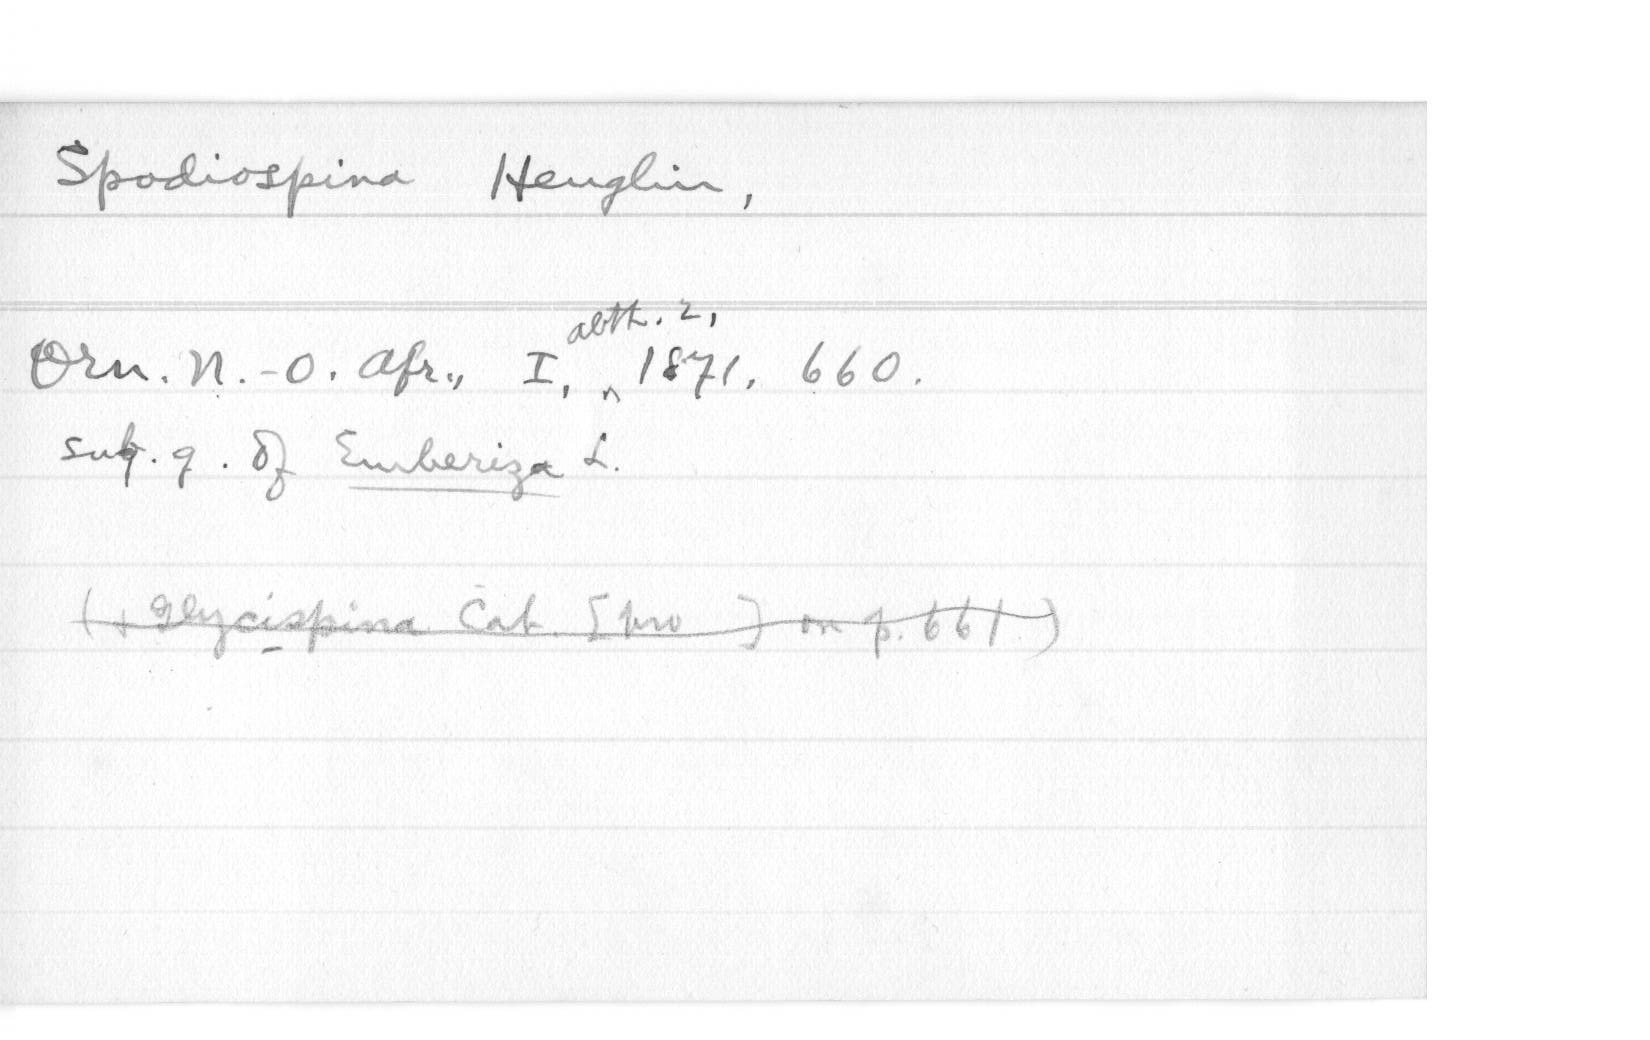 Spodiospina Heuglin,
Orn. N.-O. Afr., I, abth. 2, 1871, 660.
sub. g. of Emberiza L.
(+ Glycispina Cab. [pro ] on p. 661.)